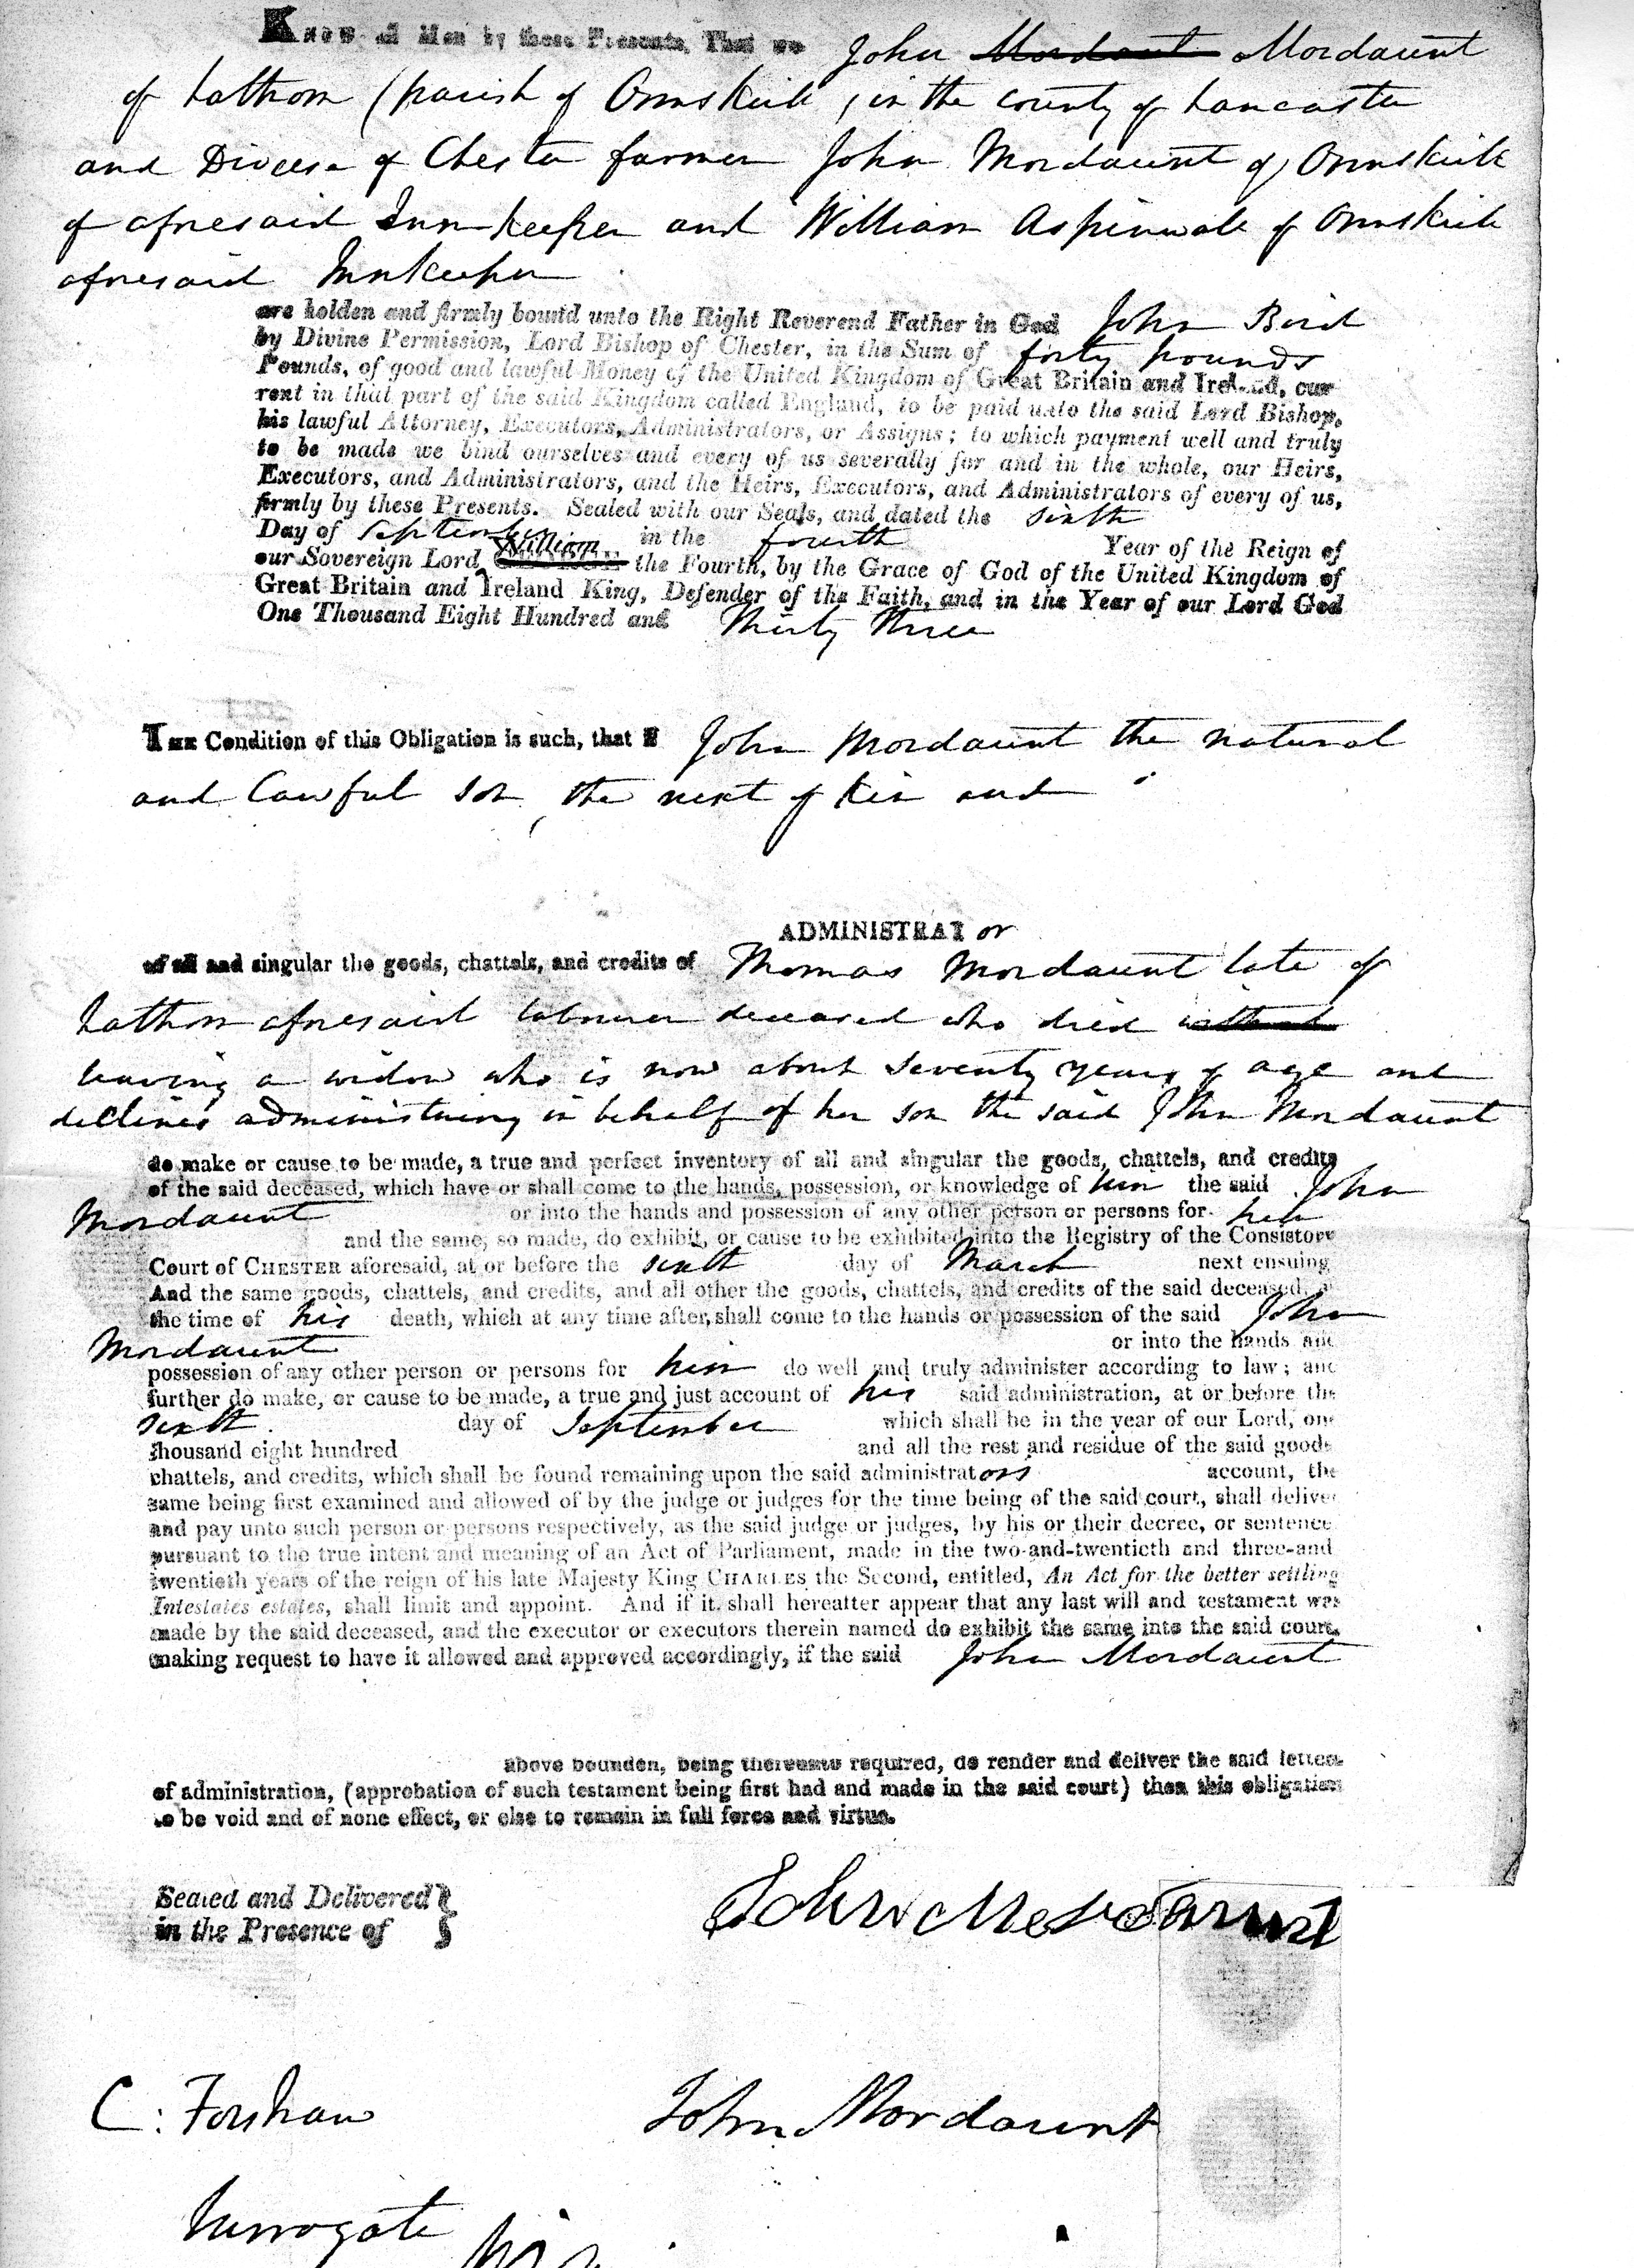 Know all Men by these Presents, That we John Mordaunt Mordaunt
of Lathom (parish of Ormskirk, in the County of Lancaster
and Diocese of Chester farmer John Mordaunt of Ormskirk
of aforesaid Inn-keeper and William Aspinwall of Ormskirk
aforesaid Innkeeper
are holden and firmly bound unto the Right Reverend Father in God John Bird
by Divine Permission, Lord Bishop of Chester, in the Sum of forty pounds
Pounds, of good and lawful Money of the United Kingdom of Great Britain and Ireland, cur
rent in that part of the said Kingdom called England, to be paid unto the said Lord Bishop,
his lawful Attorney, Executors, Administrators, or Assigns; to which payment well and truly
to be made we bind ourselves and every of us severally for and in the whole, our Heirs,
Executors, and Administrators, and the Heirs, Executors, and Administrators of every of us,
firmly by these Presents. Sealed with our Seals, and dated the sixth
Day of September in the fourth Year of the Reign of
our Sovereign Lord William the Fourth, by the Grace of God of the United Kingdom of
Great Britain and Ireland King, Defender of the Faith, and in the Year of our Lord God
One Thousand Eight Hundred and Thirty Three
THE Condition of this Obligation is such, that if John Mordaunt the natural
and Lawful son, the next of kin and
ADMINISTRATor
of all and singular the goods, chattels, and credits of Thomas Mordaunt late of
Lathom aforesaid labourer deceased who died without
leaving a widow who is now about seventy years of age and
declines administring in behalf of her son the said John Mordaunt
do make or cause to be made, a true and perfect inventory of all and singular the goods, chattels, and credits
of the said deceased, which have or shall come to the hands, possession, or knowledge of him the said John
Mordaunt or into the hands and possession of any other person or persons for him
and the same, so made, do exhibit, or cause to be exhibited into the Registry of the Consistory
Court of CHESTER aforesaid, at or before the sixth day of March next ensuing
And the same goods, chattels, and credits, and all other the goods, chattels, and credits of the said deceased, a
the time of his death, which at any time after, shall come to the hands or possession of the said John
Mordaunt or into the hands and
possession of any other person or persons for him do well and truly administer according to law; and
further do make, or cause to be made, a true and just account of his said administration, at or before the
sixth day of September which shall be in the year of our Lord, one
thousand eight hundred and all the rest and residue of the said goods
chattels, and credits, which shall be found remaining upon the said administrators account, the
same being first examined and allowed of by the judge or judges for the time being of the said court, shall deliver
and pay unto such person or persons respectively, as the said judge or judges, by his or their decree, or sentence
pursuant to the true intent and meaning of an Act of Parliament, made in the two-and-twentieth and three-and
twentieth years of the reign of his late Majesty King CHARLES the Second, entitled, An Act for the better settling
Intestates estates, shall limit and appoint. And if it shall hereafter appear that any last will and testament was
made by the said deceased, and the executor or executors therein named do exhibit the same into the said court,
making request to have it allowed and approved accordingly, if the said John Mordaunt
above bounden, being thereunto required, do render and deliver the said letters
of administration, (approbation of such testament being first had and made in the said court) then this obligation
to be void and of none effect, or else to remain in full force and virtue.
Sealed and Delivered }
in the Presence of
John Mordaunt
C: Forshaw John Mordaunt
Surrogate